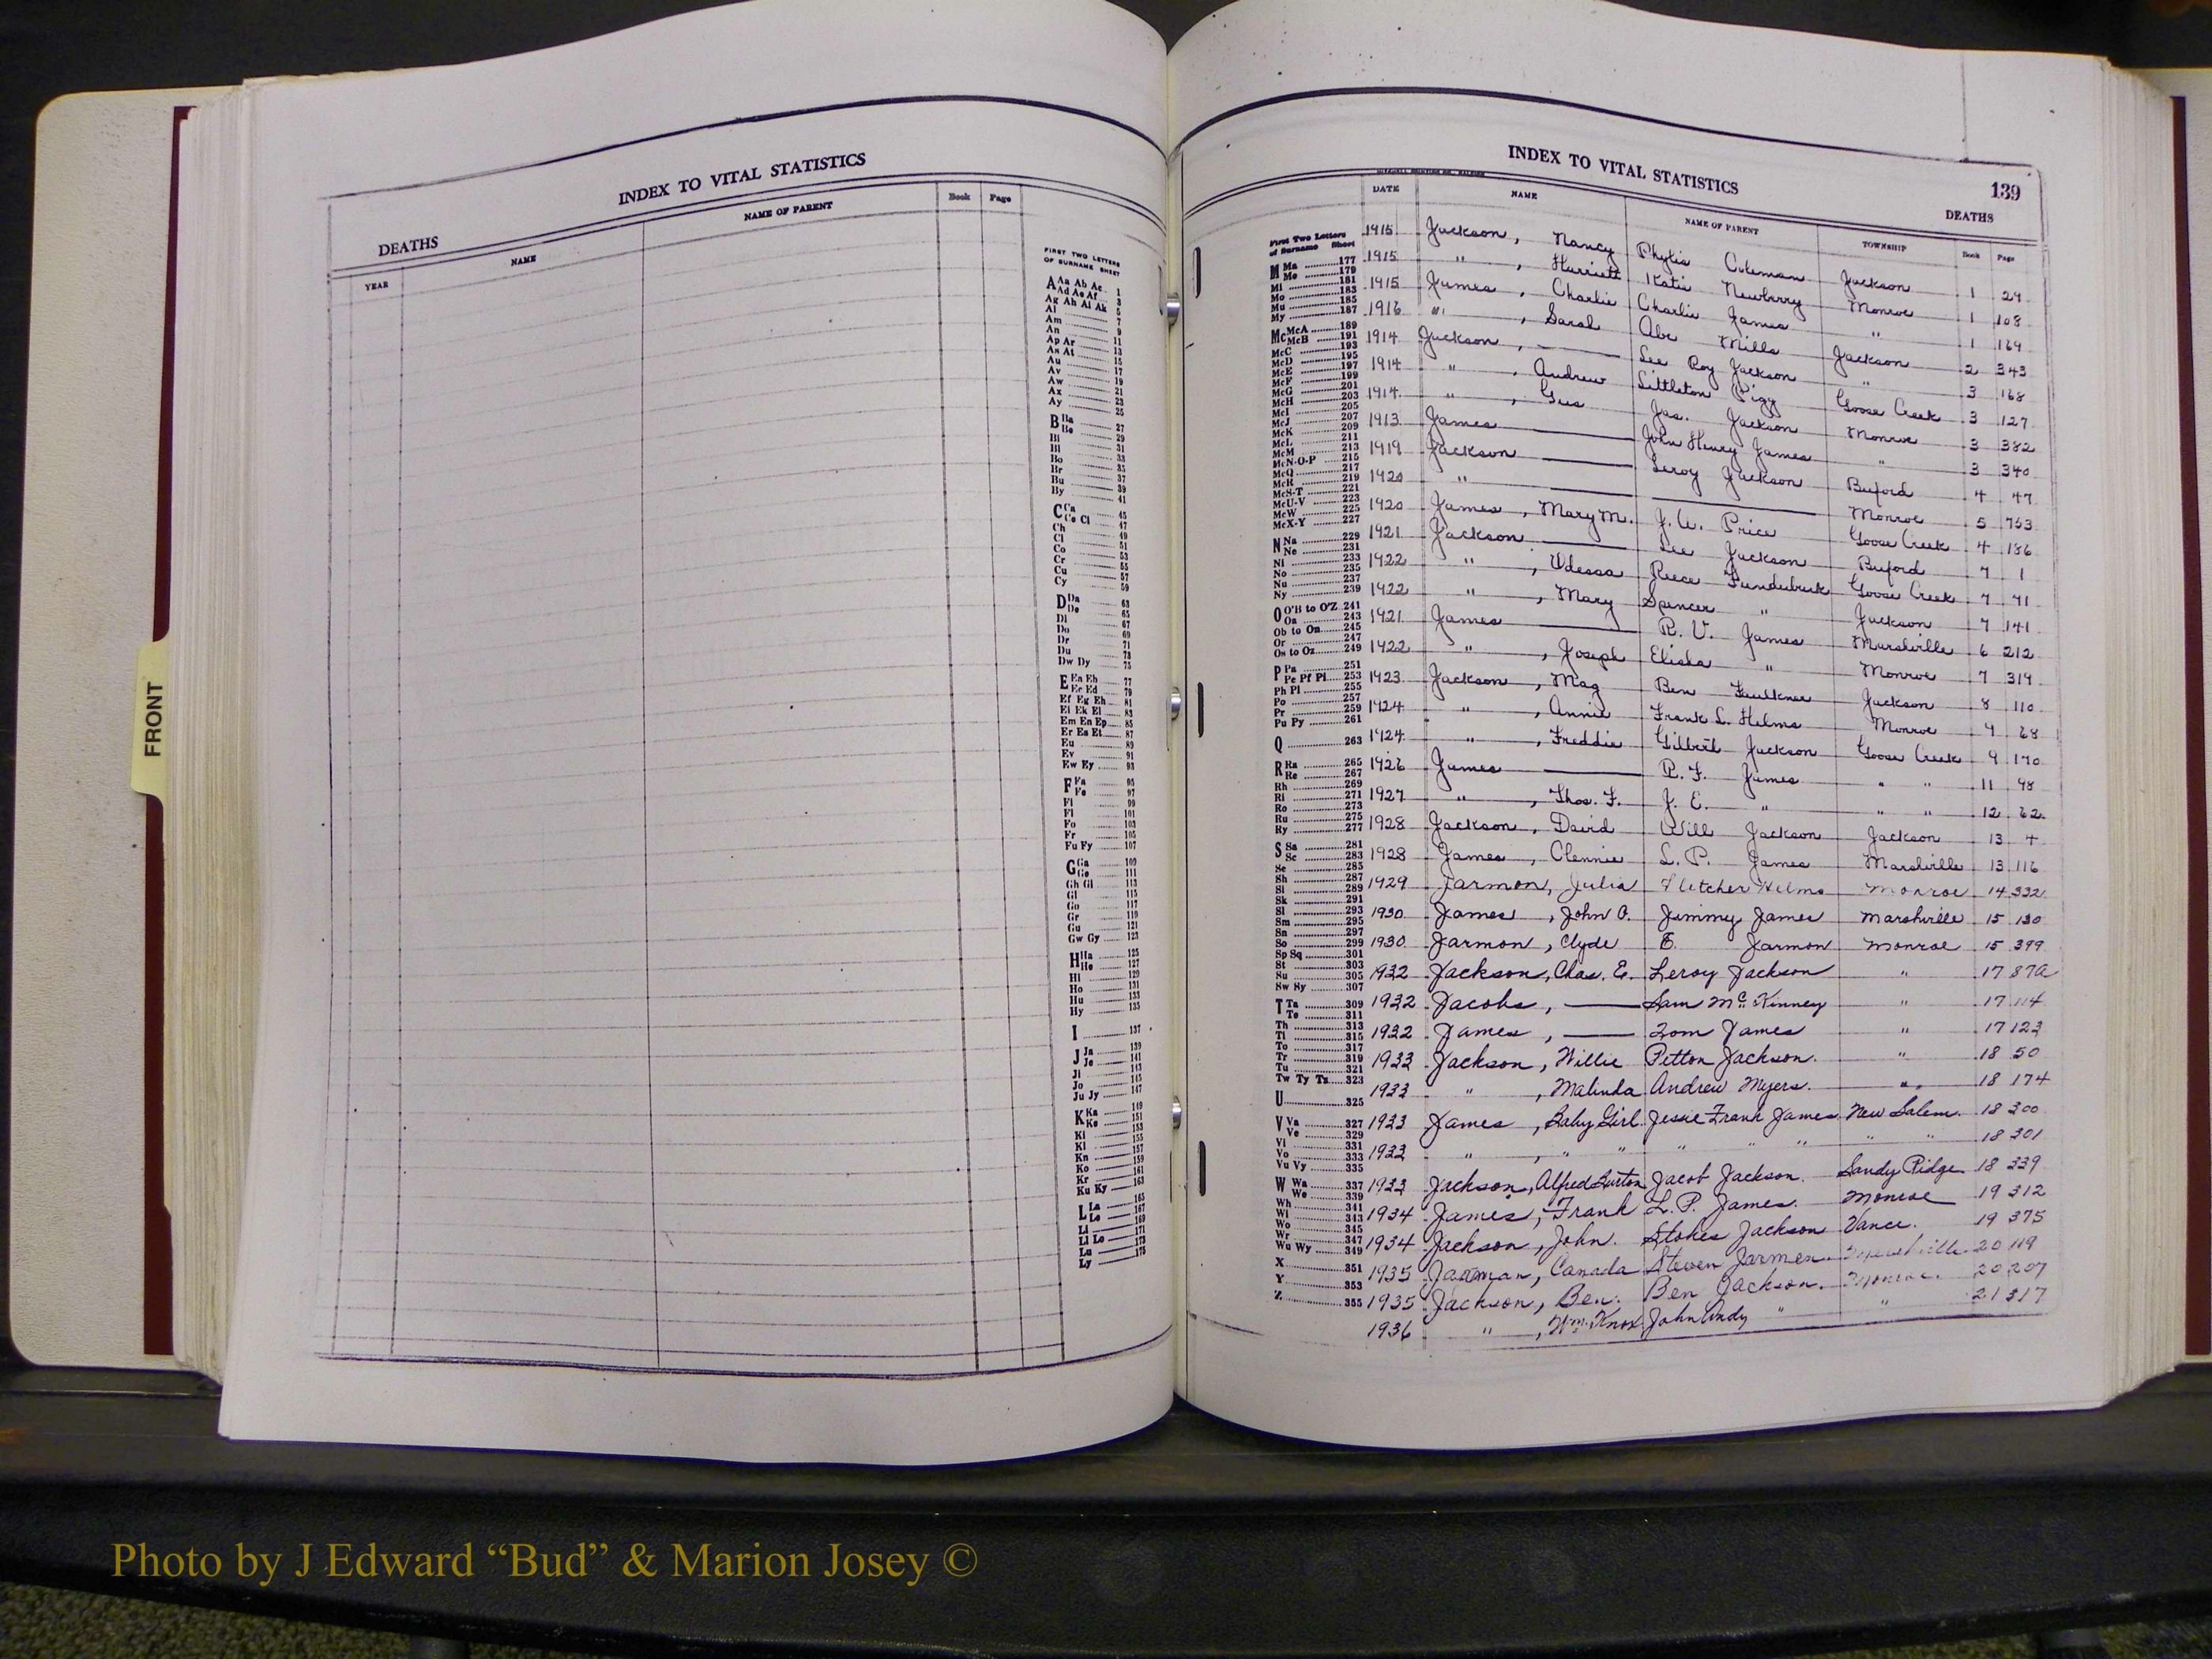 FRONT
INDEX TO VITAL STATISTICS
DEATHS
YEAR NAME NAME OF PARENT Book Page
FIRST TWO LETTERS
OF SURNAME SHEET
A Aa Ab Ac 1
Ad Ae Af 3
Ag Ah Ai Ak 5
Al 7
Am 9
An 11
Ap Ar 13
As At 15
Au 17
Av 19
Aw 21
Ax 23
Ay 25
B Ba 27
Be 29
Bi 31
Bl 33
Bo 35
Br 37
Bu 39
By 41
C Ca 45
Ce Ci 47
Ch 49
Cl 51
Co 53
Cr 55
Cu 57
Cy 59
D Da 63
De 65
Di 67
Do 69
Dr 71
Du 73
Dw Dy 75
E Ea Eb 77
Ec Ed 79
Ef Eg Eh 81
Ei Ek El 83
Em En Ep 85
Er Es Et 87
Eu 89
Ev 91
Ew Ey 93
F Fa 95
Fe 97
Fi 99
Fl 101
Fo 103
Fr 105
Fu Fy 107
G Ga 109
Ge 111
Gh Gi 113
Gl 115
Go 117
Gr 119
Gu 121
Gw Gy 123
H Ha 125
He 127
Hi 129
Ho 131
Hu 133
Hy 135
I 137
J Ja 139
Je 141
Ji 143
Jo 145
Ju Jy 147
K Ka 149
Ke 151
Ki 153
Kl 155
Kn 157
Ko 159
Kr 161
Ku Ky 163
L La 165
Le 167
Li 169
Ll Lo 171
Lu 173
Ly 175
INDEX TO VITAL STATISTICS
139
DEATHS
DATE NAME NAME OF PARENT TOWNSHIP Book Page
First Two Letters
of Surname Sheet
M Ma 177
Me 179
Mi 181
Mo 183
Mu 185
My 187
Mc McA 189
McB 191
McC 193
McD 195
McE 197
McF 199
McG 201
McH 203
McI 205
McJ 207
McK 209
McL 211
McM 213
McN-O-P 215
McQ 217
McR 219
McS-T 221
McU-V 223
McW 225
McX-Y 227
N Na 229
Ne 231
Ni 233
No 235
Nu 237
Ny 239
O O'B to O'Z 241
Oa 243
Ob to On 245
Or 247
Os to Oz 249
P Pa 251
Pe Pf Pi 253
Ph Pl 255
Po 257
Pr 259
Pu Py 261
Q 263
R Ra 265
Re 267
Rh 269
Ri 271
Ro 273
Ru 275
Ry 277
S Sa 281
Sc 283
Se 285
Sh 287
Si 289
Sk 291
Sl 293
Sm 295
Sn 297
So 299
Sp Sq 301
St 303
Su 305
Sw Sy 307
T Ta 309
Te 311
Th 313
Ti 315
To 317
Tr 319
Tu 321
Tw Ty Tz 323
U 325
V Va 327
Ve 329
Vi 331
Vo 333
Vu Vy 335
W Wa 337
We 339
Wh 341
Wi 343
Wo 345
Wr 347
Wu Wy 349
X 351
Y 353
Z 355
1915 Jackson, Nancy Phylis Coleman Jackson 1 24
1915 " , Harriett Katie Newberry Monroe 1 108
1915 James, Charlie Charlie James " 1 164
1916 " , Sarah Abe Mills Jackson 2 343
1914 Jackson, — Lee Roy Jackson " 3 168
1914 " , Andrew Littleton Pigg Goose Creek 3 127
1914 " , Gus Jas. Jackson Monroe 3 382
1913 James — John Henry James " 3 340
1919 Jackson — Leroy Jackson Buford 4 47
1920 " — — Monroe 5 753
1920 James, Mary M. J. W. Price Goose Creek 4 186
1921 Jackson — Lee Jackson Buford 7 1
1922 " , Odessa Reece Funderburk Goose Creek 7 71
1922 " , Mary Spencer " Jackson 7 141
1921 James — R. V. James Marshville 6 212
1922 " , Joseph Elisha " Monroe 7 319
1923 Jackson, Mag Ben Faulkner Jackson 8 110
1924 " , Annie Frank L. Helms Monroe 9 68
1924 " , Freddie Gilbert Jackson Goose Creek 9 170
1926 James — R. F. James " " 11 98
1927 " , Thos. F. J. E. " " " 12 62
1928 Jackson, David Will Jackson Jackson 13 4
1928 James, Clennie L. P. James Marshville 13 116
1929 Jarmon, Julia Fletcher Helms Monroe 14 332
1930 James, John A. Jimmy James Marshville 15 130
1930 Jarmon, Clyde E. Jarmon Monroe 15 399
1932 Jackson, Chas. E. Leroy Jackson " 17 87a
1932 Jacobs, — Sam McKinney " 17 114
1932 James, — Tom James " 17 123
1933 Jackson, Willie Petton Jackson. " 18 50
1933 " , Malinda Andrew Myers. " 18 174
1933 James, Baby Girl Jessie Frank James New Salem. 18 300
1933 " , " " " " " " " " 18 301
1933 Jackson, Alfred Burton Jacob Jackson. Sandy Ridge 18 339
1934 James, Frank L. P. James. Monroe 19 312
1934 Jackson, John. Stokes Jackson Vance. 19 375
1935 Jarman, Canada Steven Jarmen Marshville 20 119
1935 Jackson, Ben. Ben Jackson. Monroe. 20 207
1936 " , Wm. Knox John Andy " " 21 317
Photo by J Edward “Bud” & Marion Josey ©